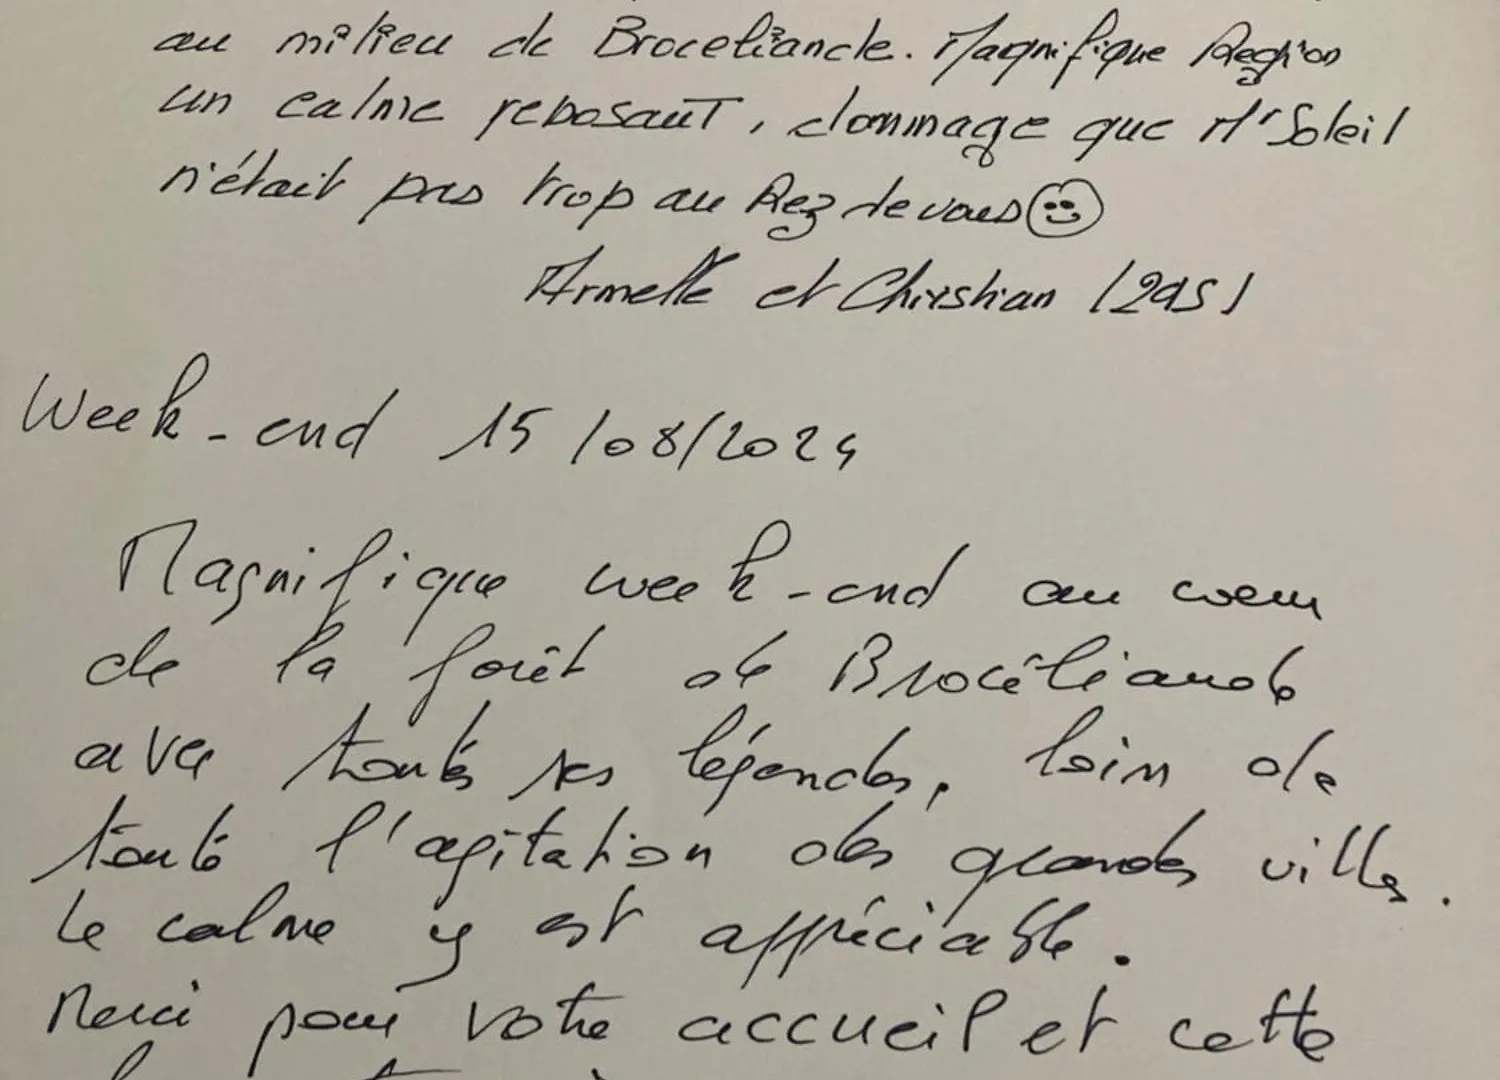 au milieu de Broceliande. Magnifique Region
un calme reposant, dommage que Mr Soleil
n'était pas trop au Rez de vous
Armelle et Chirstian
Week-end 15/08/2024
Magnifique week-end au coeur
de la forêt de Brocéliande
avec toutes ses légendes, loin de
toute l'agitation des grandes villes.
Le calme y est appréciable.
Merci pour votre accueil et cette